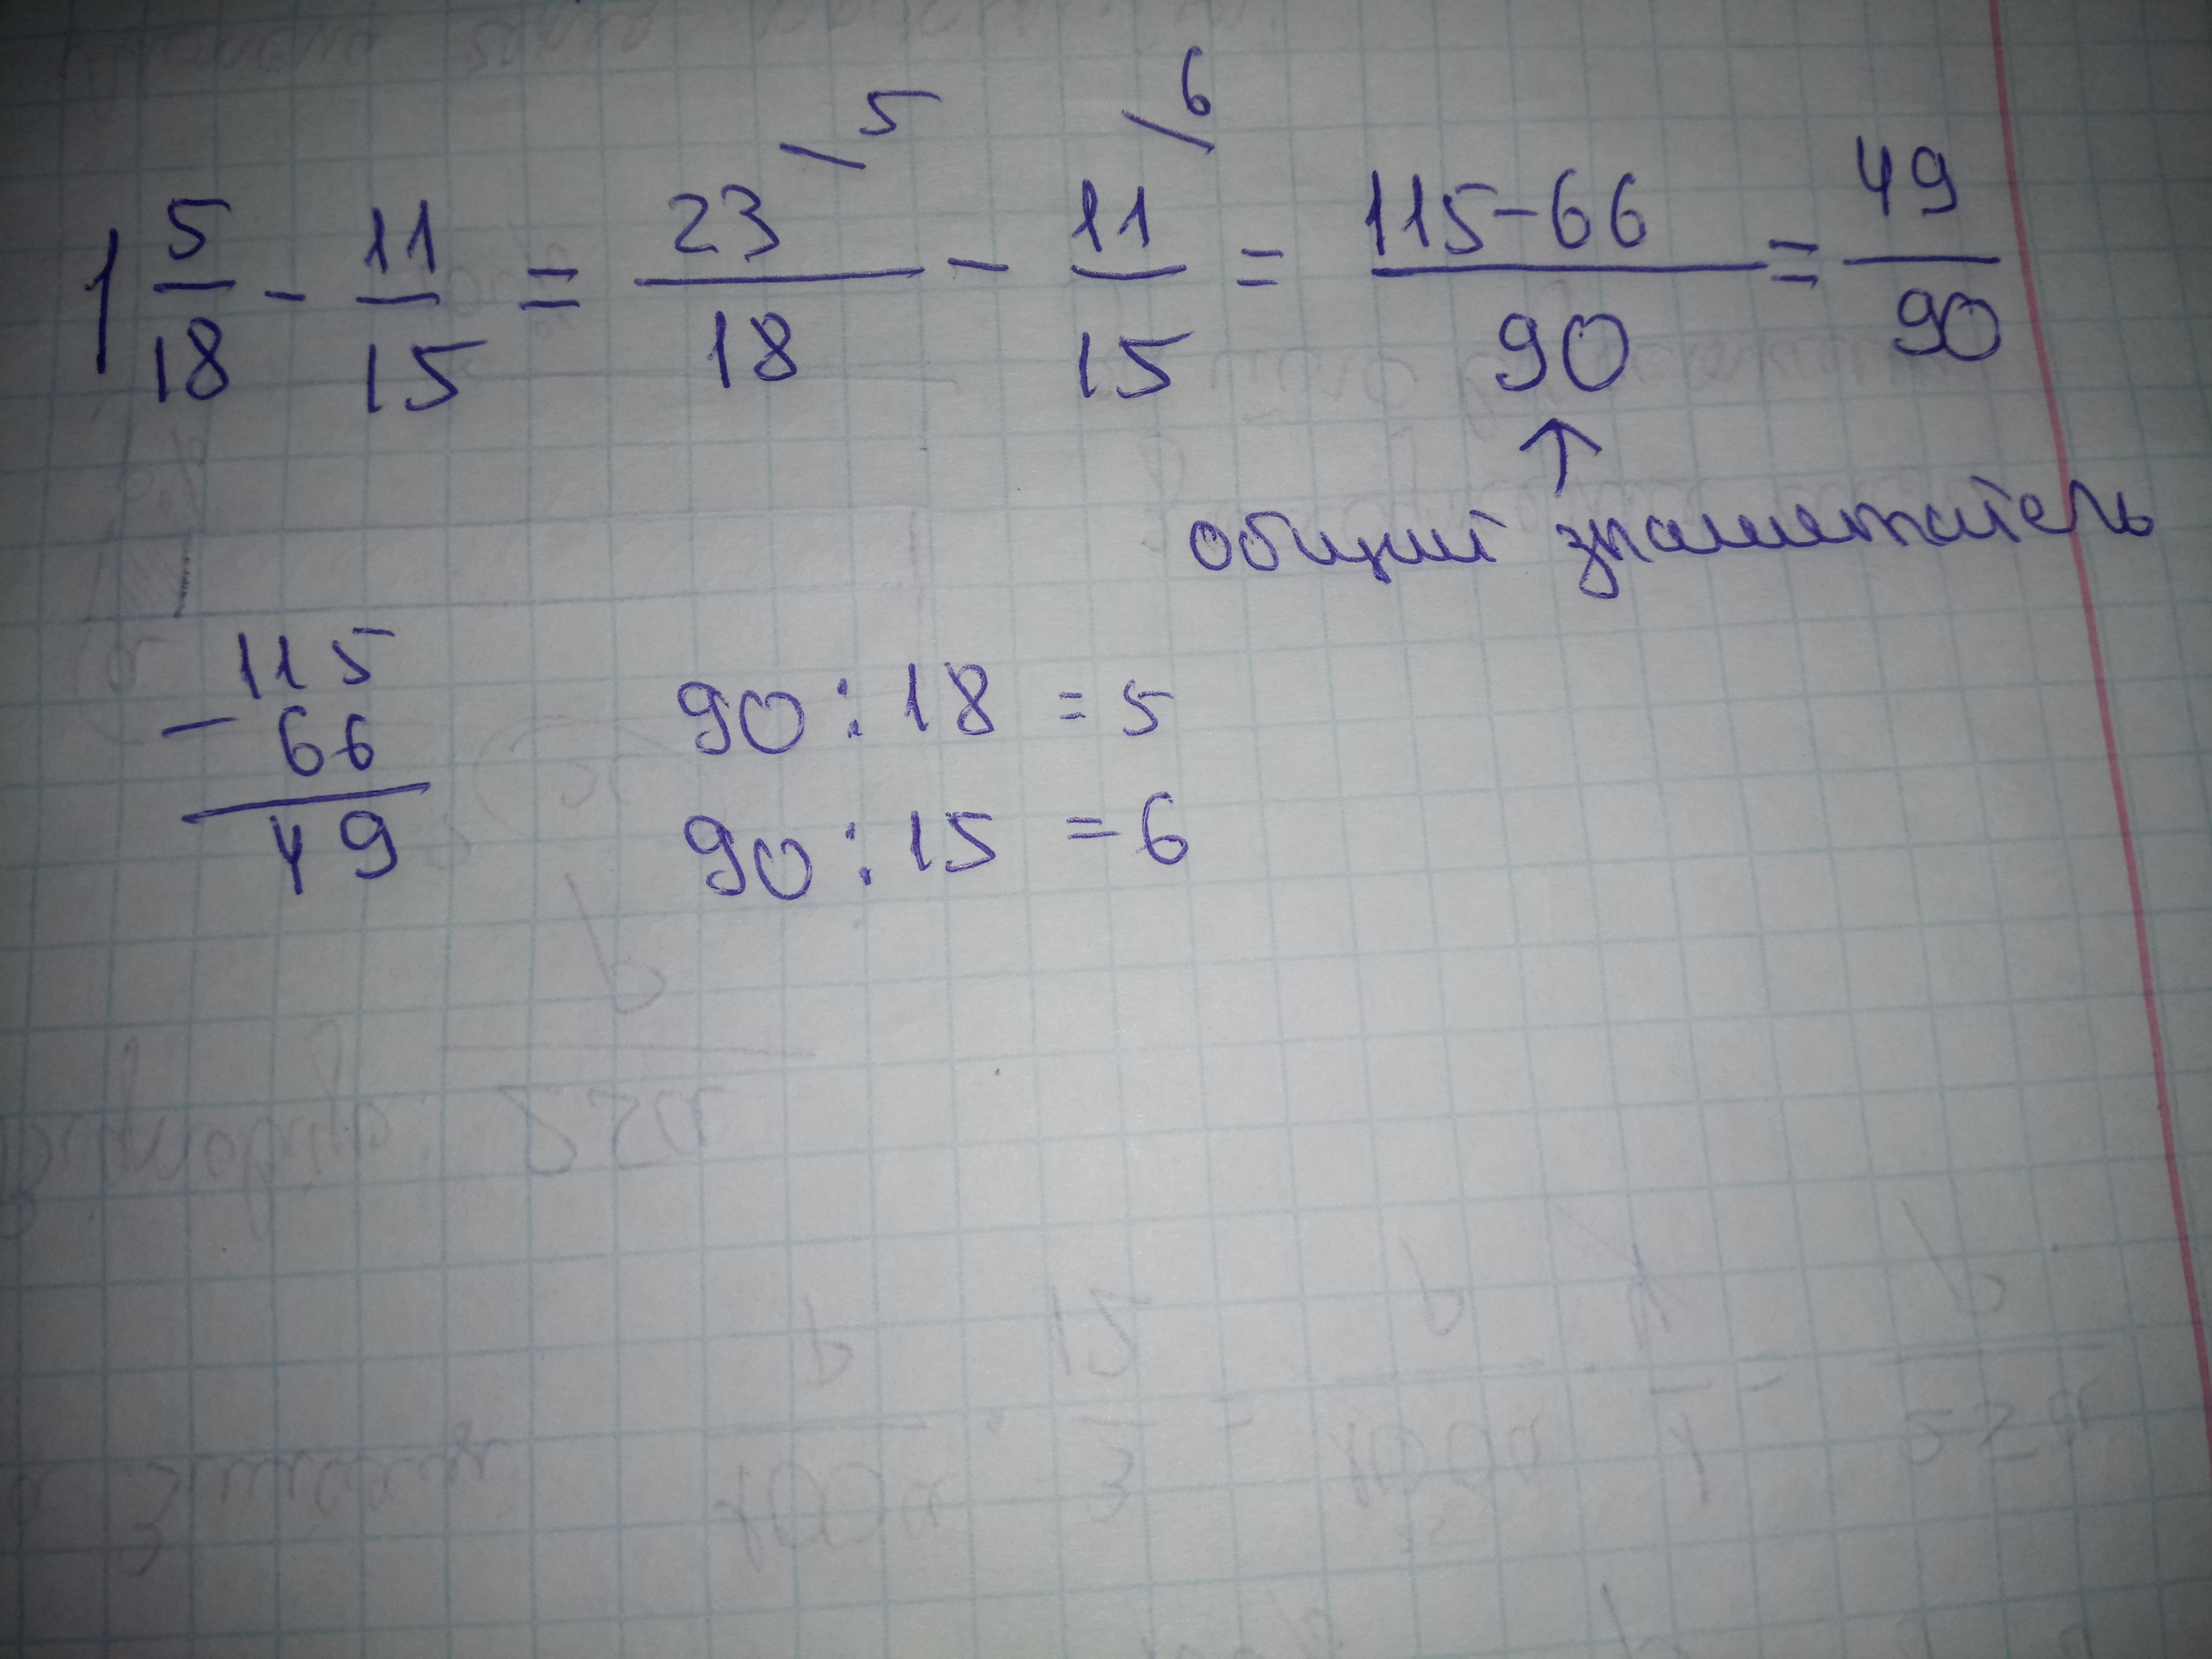 1 5/18 - 11/15 = 23/18 \5 - 11/15 \6 = 115-66/90 = 49/90
↑
общий знаменатель
115
- 66
49
90 : 18 = 5
90 : 15 = 6